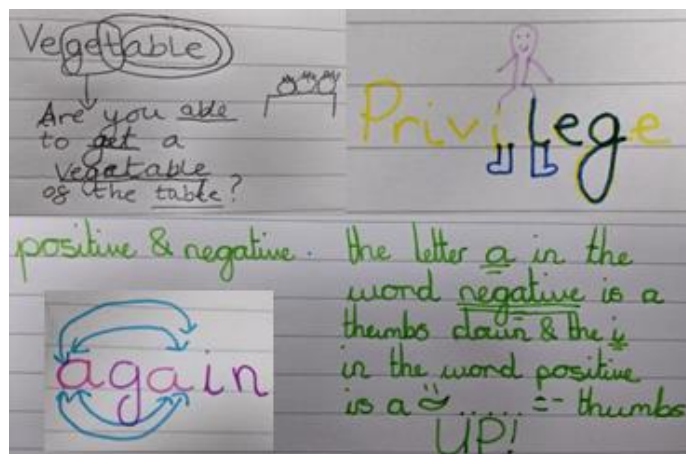 Vegetable
Are you able
to get a
vegatable
of the table?
Privilege
positive & negative.
again
the letter a in the
word negative is a
thumbs down & the i
in the word positive
is a ..... thumbs
UP!